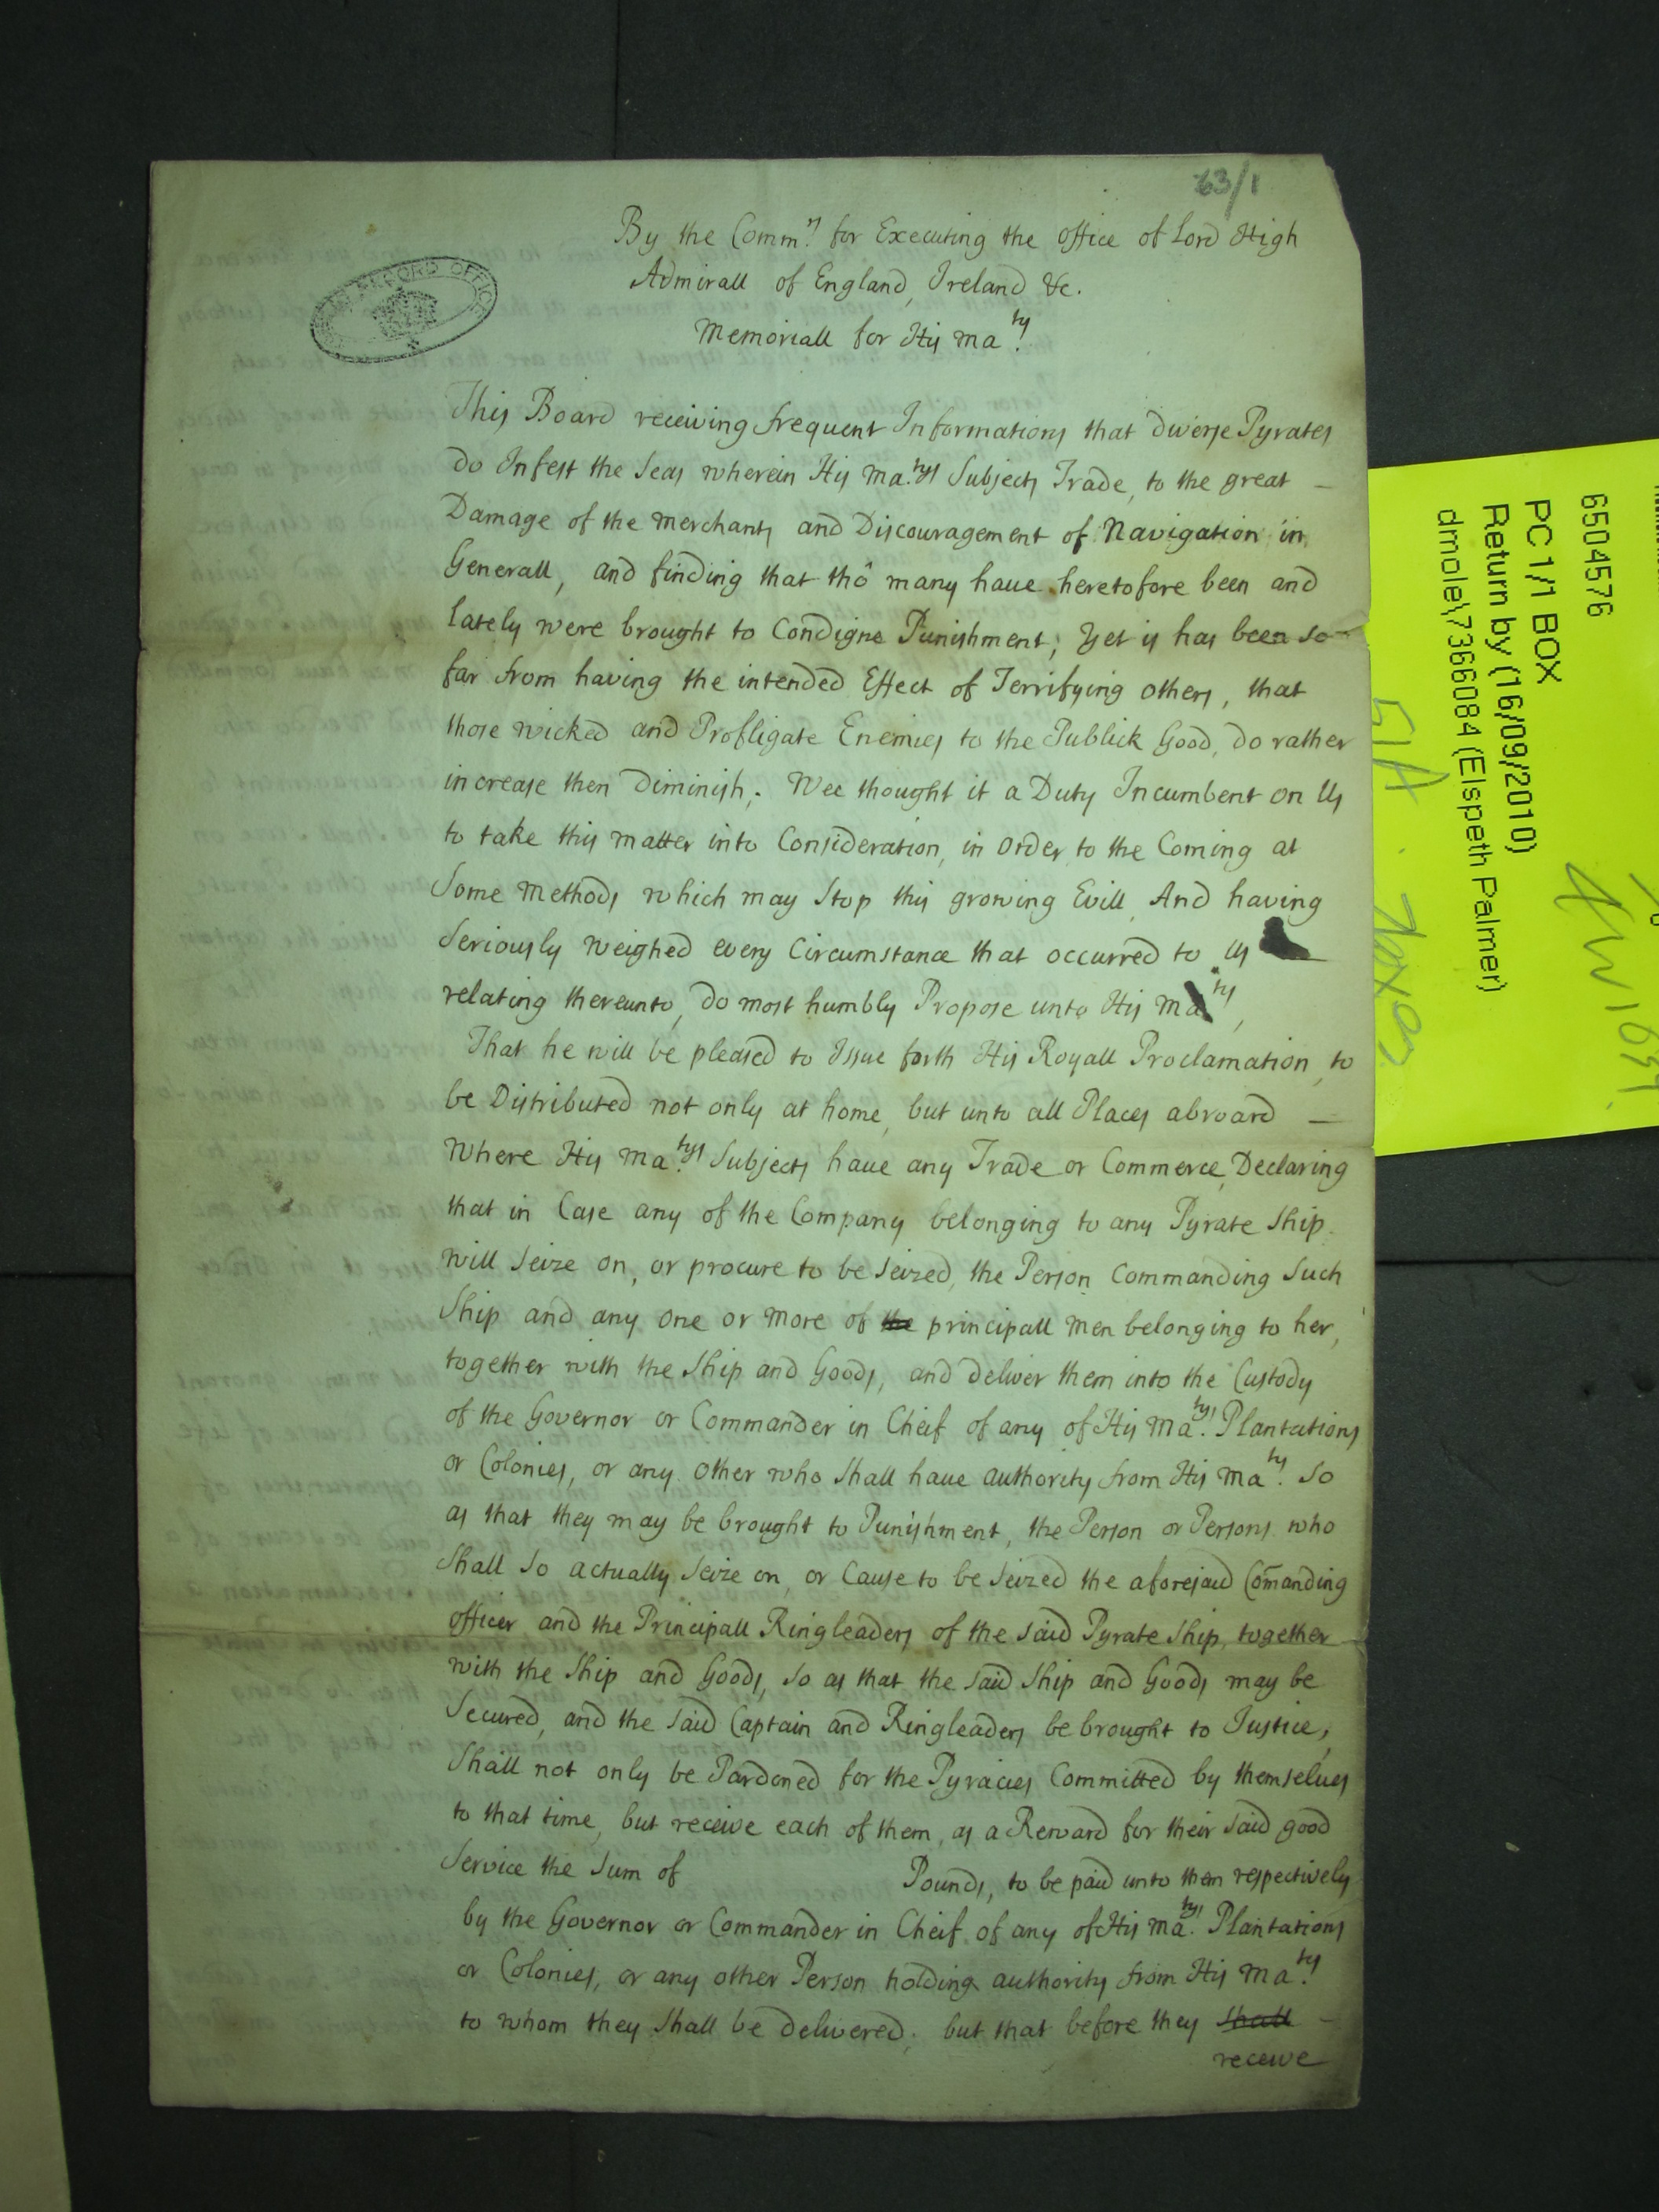 63/1
By the Comm.rs for Executing the office of Lord High
Admirall of England, Ireland &c.
Memoriall for His Ma.ty
RECORD OFFICE
This Board receiving frequent Informations that diverse Pyrates
do Infest the Seas wherein His Ma.tys Subjects Trade, to the great —
Damage of the Merchants and Discouragement of Navigation in
Generall, and finding that thô many have heretofore been and
lately were brought to Condigne Punishment; Yet is has been so
far from having the intended Effect of Terrifying others, that
those wicked and Profligate Enemies to the Publick Good, do rather
increase then Diminish. Wee thought it a Duty Incumbent on Us
to take this matter into Consideration, in Order to the Coming at
Some Methods which may Stop this growing Evill, And having
Seriously weighed every Circumstance that occurred to us
relating thereunto, do most humbly Propose unto His Ma.ty,
That he will be pleased to Issue forth His Royall Proclamation, to
be Distributed not only at home, but unto all Places abroard —
where His Ma.tys Subjects have any Trade or Commerce, Declaring
that in Case any of the Company belonging to any Pyrate Ship
will Seize on, or procure to be Seized, the Person Commanding Such
Ship and any one or more of the principall men belonging to her,
together with the Ship and Goods, and deliver them into the Custody
of the Governor or Commander in Cheif of any of His Ma.tys Plantations
or Colonies, or any other who Shall have authority from His Ma.ty So
as that they may be brought to Punishment, the Person or Persons who
Shall So actually Seize on, or Cause to be Seized the aforesaid Com̄anding
officer and the Principall Ringleaders of the said Pyrate Ship, together
with the Ship and Goods, So as that the said Ship and Goods may be
Secured, and the said Captain and Ringleaders be brought to Justice,
Shall not only be Pardoned for the Pyracies Committed by themselves
to that time, but receive each of them, as a Reward for their said good
Service the Sum of Pounds, to be paid unto them respectively
by the Governor or Commander in Cheif of any of His Ma.tys Plantations
or Colonies, or any other Person holding authority from His Ma.ty
to whom they Shall be delivered; but that before they Shall
receive
6504576
PC 1/1 BOX
Return by (16/09/2010)
dmole\736084 (Elspeth Palmer)
51A